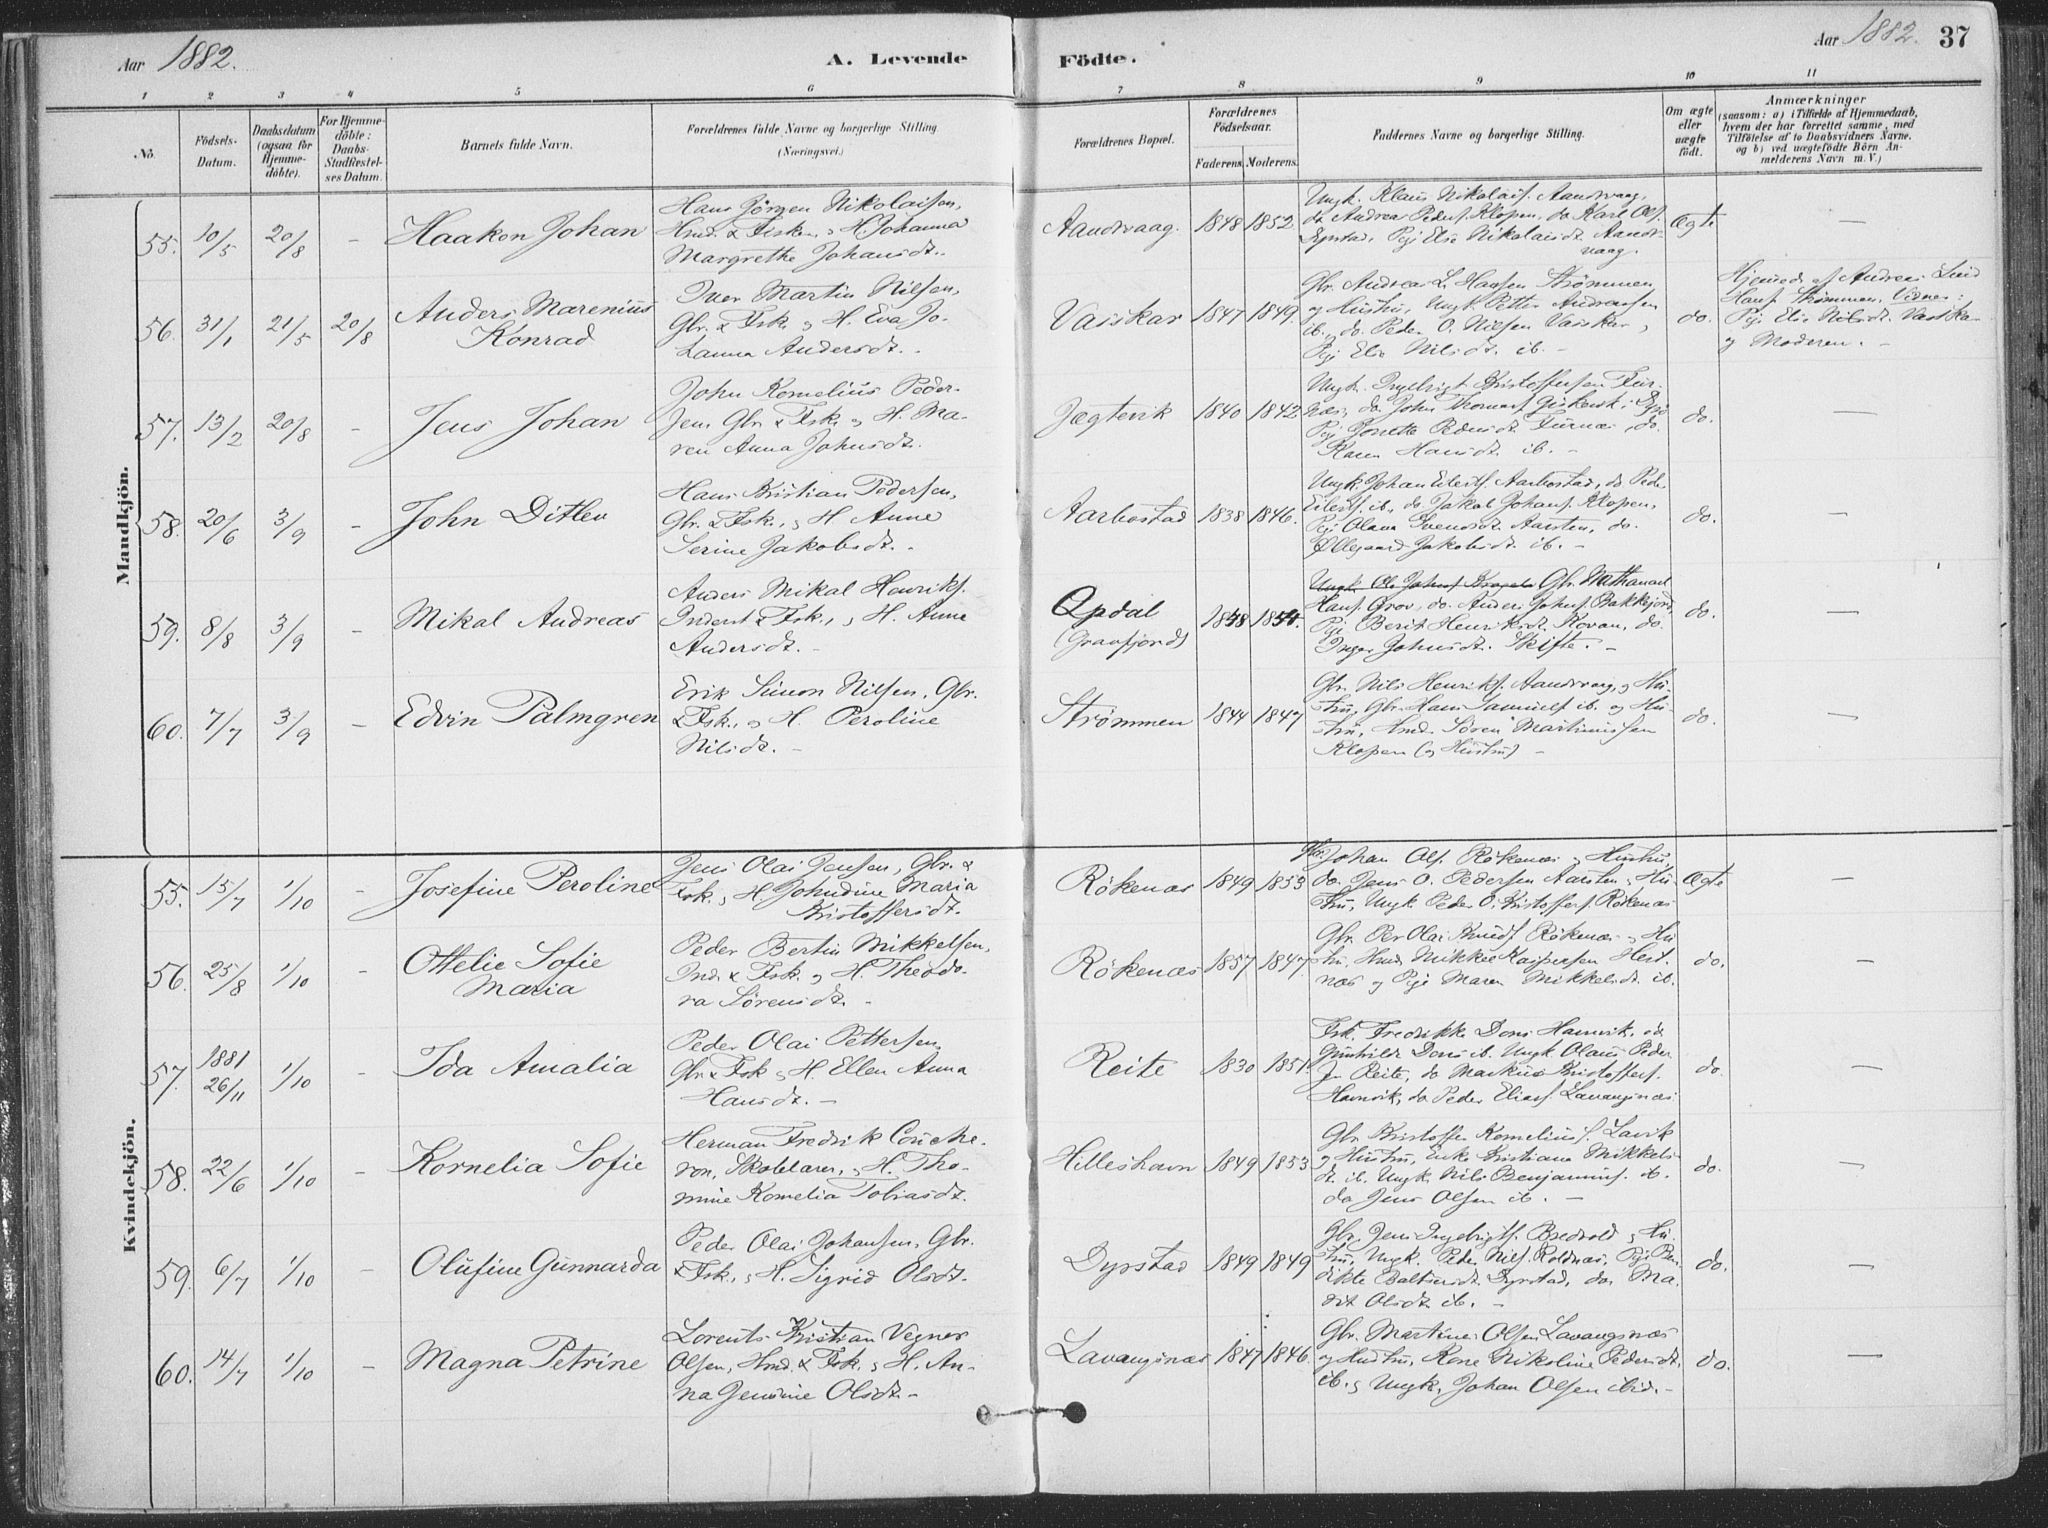 Aar 1882.
A. Levende
Födte.
Aar 1882. 37
1 2 3 4 5 6 7 8 9 10 11
No.
Födsels-
Datum.
Daabsdatum
(ogsaa for
Hjemme-
döbte).
For Hjemme-
döbte:
Daabs-
Stadfæstel-
ses Datum.
Barnets fulde Navn.
Forældrenes fulde Navne og borgerlige Stilling.
(Næringsvei.)
Forældrenes Bopæl.
Forældrenes
Födselsaar.
Faderens. Moderens.
Faddernes Navne og borgerlige Stilling.
Om ægte
eller
uægte
födt.
Anmærkninger
(saasom: a) i Tilfælde af Hjemmedaab,
hvem der har forrettet samme, med
Tilföielse af to Daabsvidners Navne,
og b) ved uægtefödte Börn An-
melderens Navn m. V.)
Mandkjön.
55. 10/5 20/8 - Haakon Johan
Hans Jørgen Nikolaisen,
Hmd. & Fsker, og H. Johanna
Margrethe Johansdt.
Aandvaag. 1848 1852
Ungk. Klaus Nikolais. Aandvaag,
do Andrea Peders. Klopen, do Karl Ols.
Dyrstad, Pige Else Nikolaisdt. Aand-
vaag.
Ægte —
56. 31/1 21/5 20/8 Anders Marenius
Konrad
Iver Martin Nilsen,
Gbr. & Fsk. og H. Eva Jo-
hanna Andersdt.
Vasskar 1847 1849.
Gbr. Andreas L. Hansen Strömmen
og Hustru, Ungk. Petter Andreassen
ib., do. Peder O. Nilsen Vasskar,
Pige Else Nilsdt. ib. -
do.
Hjemmed. af Andreas Lind
Hans. Strömmen. Vidner:
Pige Else Nilsdt. Vasska
og Moderen. -
57. 13/2 20/8 - Jens Johan
John Kornelius Peder-
sen Gbr. & Fsk. og H. Ma-
ren Anna Johnsdt.
Jægtvik 1840 1842
Ungk. Ingebrigt Kristoffersen Fur-
næs, do. John Thomas.
Pige Jonette Pedersdt. Furnæs, do.
Karen Hansdt. ib. -
do. —
58. 20/6 3/9 - John Ditlev
Hans Kristian Pedersen,
Gbr. & Fsk., og H. Anne
Serine Jakobsdt. -
Aarbostad 1838 1846.
Ungk. Johan Eilerts. Aarbostad, do Peder
Eilerts. ib., do Jakob Johans. Klopen,
Pige Olava Svendsdt. Aarsten, do.
Øllegaard Jakobsdt. ib. -
do. —
59. 8/8 3/9 - Mikal Andreas
Anders Mikal Henriks.
Inderst & Fsk., og H. Anne
Andersdt. -
Opdal
(Gravfjord)
1858 1854.
Gbr. Nathanael
Hans. Grov, do. Anders Johns. Bakkejord,
Pige Berit Henriksdt. Rovan, do.
Inger Johnsdt. Skifte. -
do. —
60. 7/7 3/9 - Edvin Palmgren
Erik Simon Nilsen, Gbr.
& Fsk., og H. Peroline
Nilsdt. -
Strømmen 1844 1847
Gbr. Nils Henriks. Aandvaag, og Hu-
stru, Gbr. Hans Samuels. ib. og Hu-
stru, Hmd. Sören Martinussen
Klopen (og Hustru) -
do. —
Kvindekjön.
55. 15/7 1/10 - Josefine Peroline
Jens Olai Jensen, Gbr. &
Fsk., og H. Johndine Maria
Kristoffersdt.
Rökenæs 1849 1853
Gbr. Johan Ols. Rökenæs og Hustru,
do. Jens O. Pedersen Aarsten og Hu-
stru, Ungk. Peder O. Kristoffers. Rökenæs
Ægte —
56. 25/8 1/10 - Ottelie Sofie
Maria
Peder Bertin Mikkelsen,
Ind. & Fsk. og H. Theodo-
ra Sörensdt. -
Rökenæs 1857 1847
Gbr. Per Olai Knuds. Rökenæs og Hu-
stru, Hmd. Mikkel Kaspersen
næs og Pige Maren Mikkelsdt. ib.
do. —
57. 1881 26/11 1/10 - Ida Amalia
Peder Olai Pettersen,
Gbr. & Fsk. og H. Ellen Anna
Hansdt. -
Reite 1830 1851.
Fsk. Fredrikke Dons Havnvik, do
Gunhilde Dons ib. Ungk. Olaus Peder
sen Reite, do Markus Kristoffers.
Havnvik, do Peder Elias. Lavangsnæs
do. —
58. 22/6 1/10 - Kornelia Sofie
Herman Fredrik Couche-
ron, Skolelærer, og H. Tho-
mine Kornelia Tobiasdt.
Hilleshavn 1849 1853
Gbr. Kristoffer Kornelius. Lavik
og Hustru, Enke Kristiane Mikkels-
dt. ib. Ungk. Nils Benjamins. ib.
do Jens Olsen ib. -
do. —
59. 6/7 1/10 - Olufine Gunnarda
Peder Olai Johansen, Gbr.
& Fsk., og H. Sigrid Olsdt.
Dyrstad 1849 1849
Gbr. Jens Ingebrigts. Bredvold og Hu-
stru, Ungk. Peder Nils. Roldnæs, Pige Ben-
dikte Baltsersdt. Dyrstad, do. Ma-
rit Olsdt. ib. -
do. —
60. 14/7 1/10 - Magna Petrine
Lorents Kristian Vegner
Olsen, Hmd. & Fsk. og H. An-
na Jensine Olsdt. -
Lavangsnæs 1847 1846.
Gbr. Martines Olsen Lavangsnæs
og Hustru, Kone Nikoline Pedersdt.
ib. og Ungk. Johan Olsen ibid. -
do. —